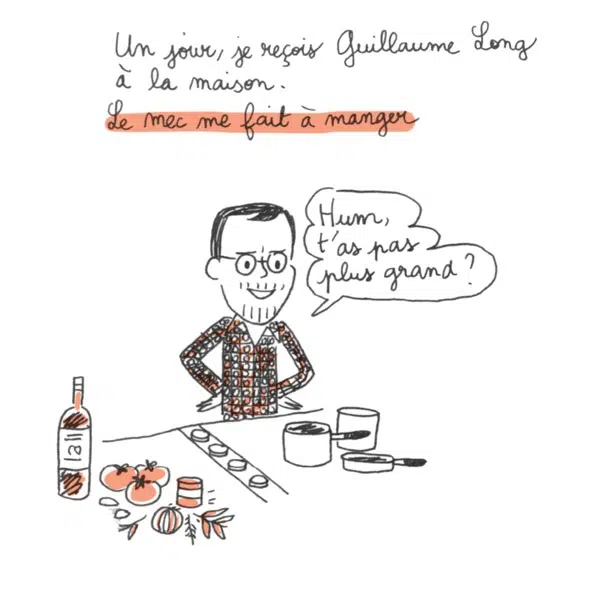 Un jour, je reçois Guillaume Long
à la maison.
Le mec me fait à manger
Hum,
t'as pas
plus grand ?